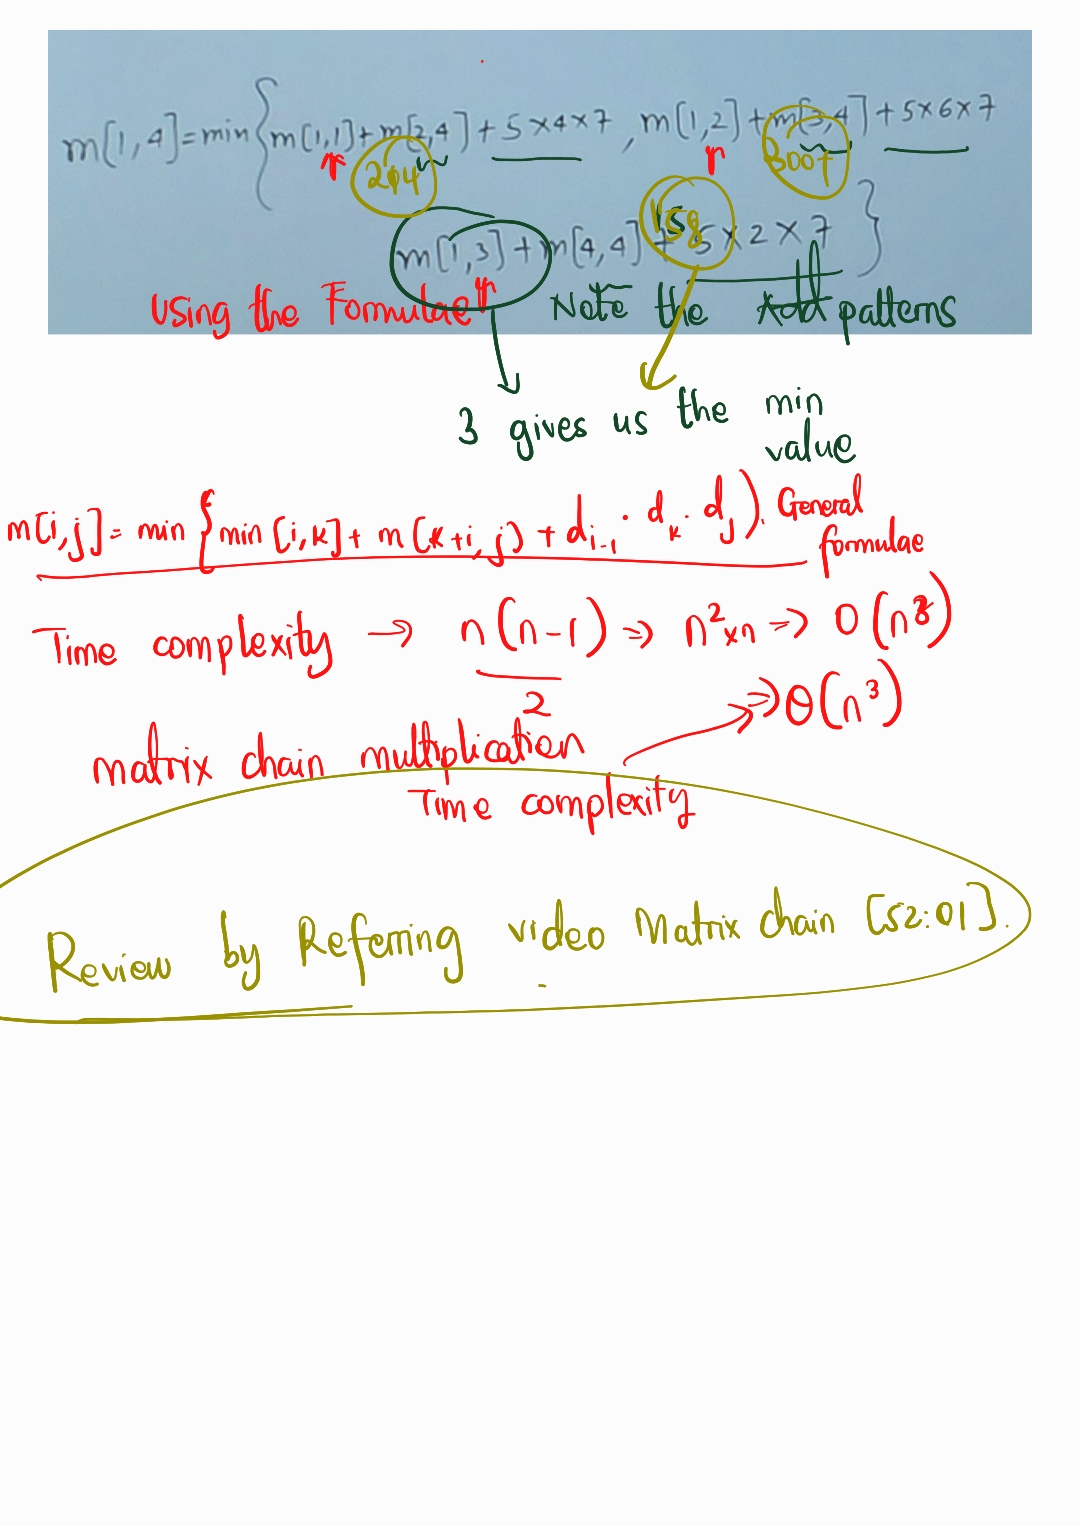 m[1,4]=min{m[1,1]+m[2,4]+5×4×7, m[1,2]+m[3,4]+5×6×7
r 244 r 300+
158
m[1,3]+m[4,4]+5×2×7}
Using the Formulae r Note the Add patterns
3 gives us the min
value
m[i,j]= min {min[i,k]+ m(k+i,j) + d_{i-1} . d_k . d_j). General
formulae
Time complexity → n(n-1)/2 ⇒ n²×n ⇒ O(n³)
⇒ θ(n³)
matrix chain multiplication
Time complexity
Review by Referring video Matrix chain [52:01].